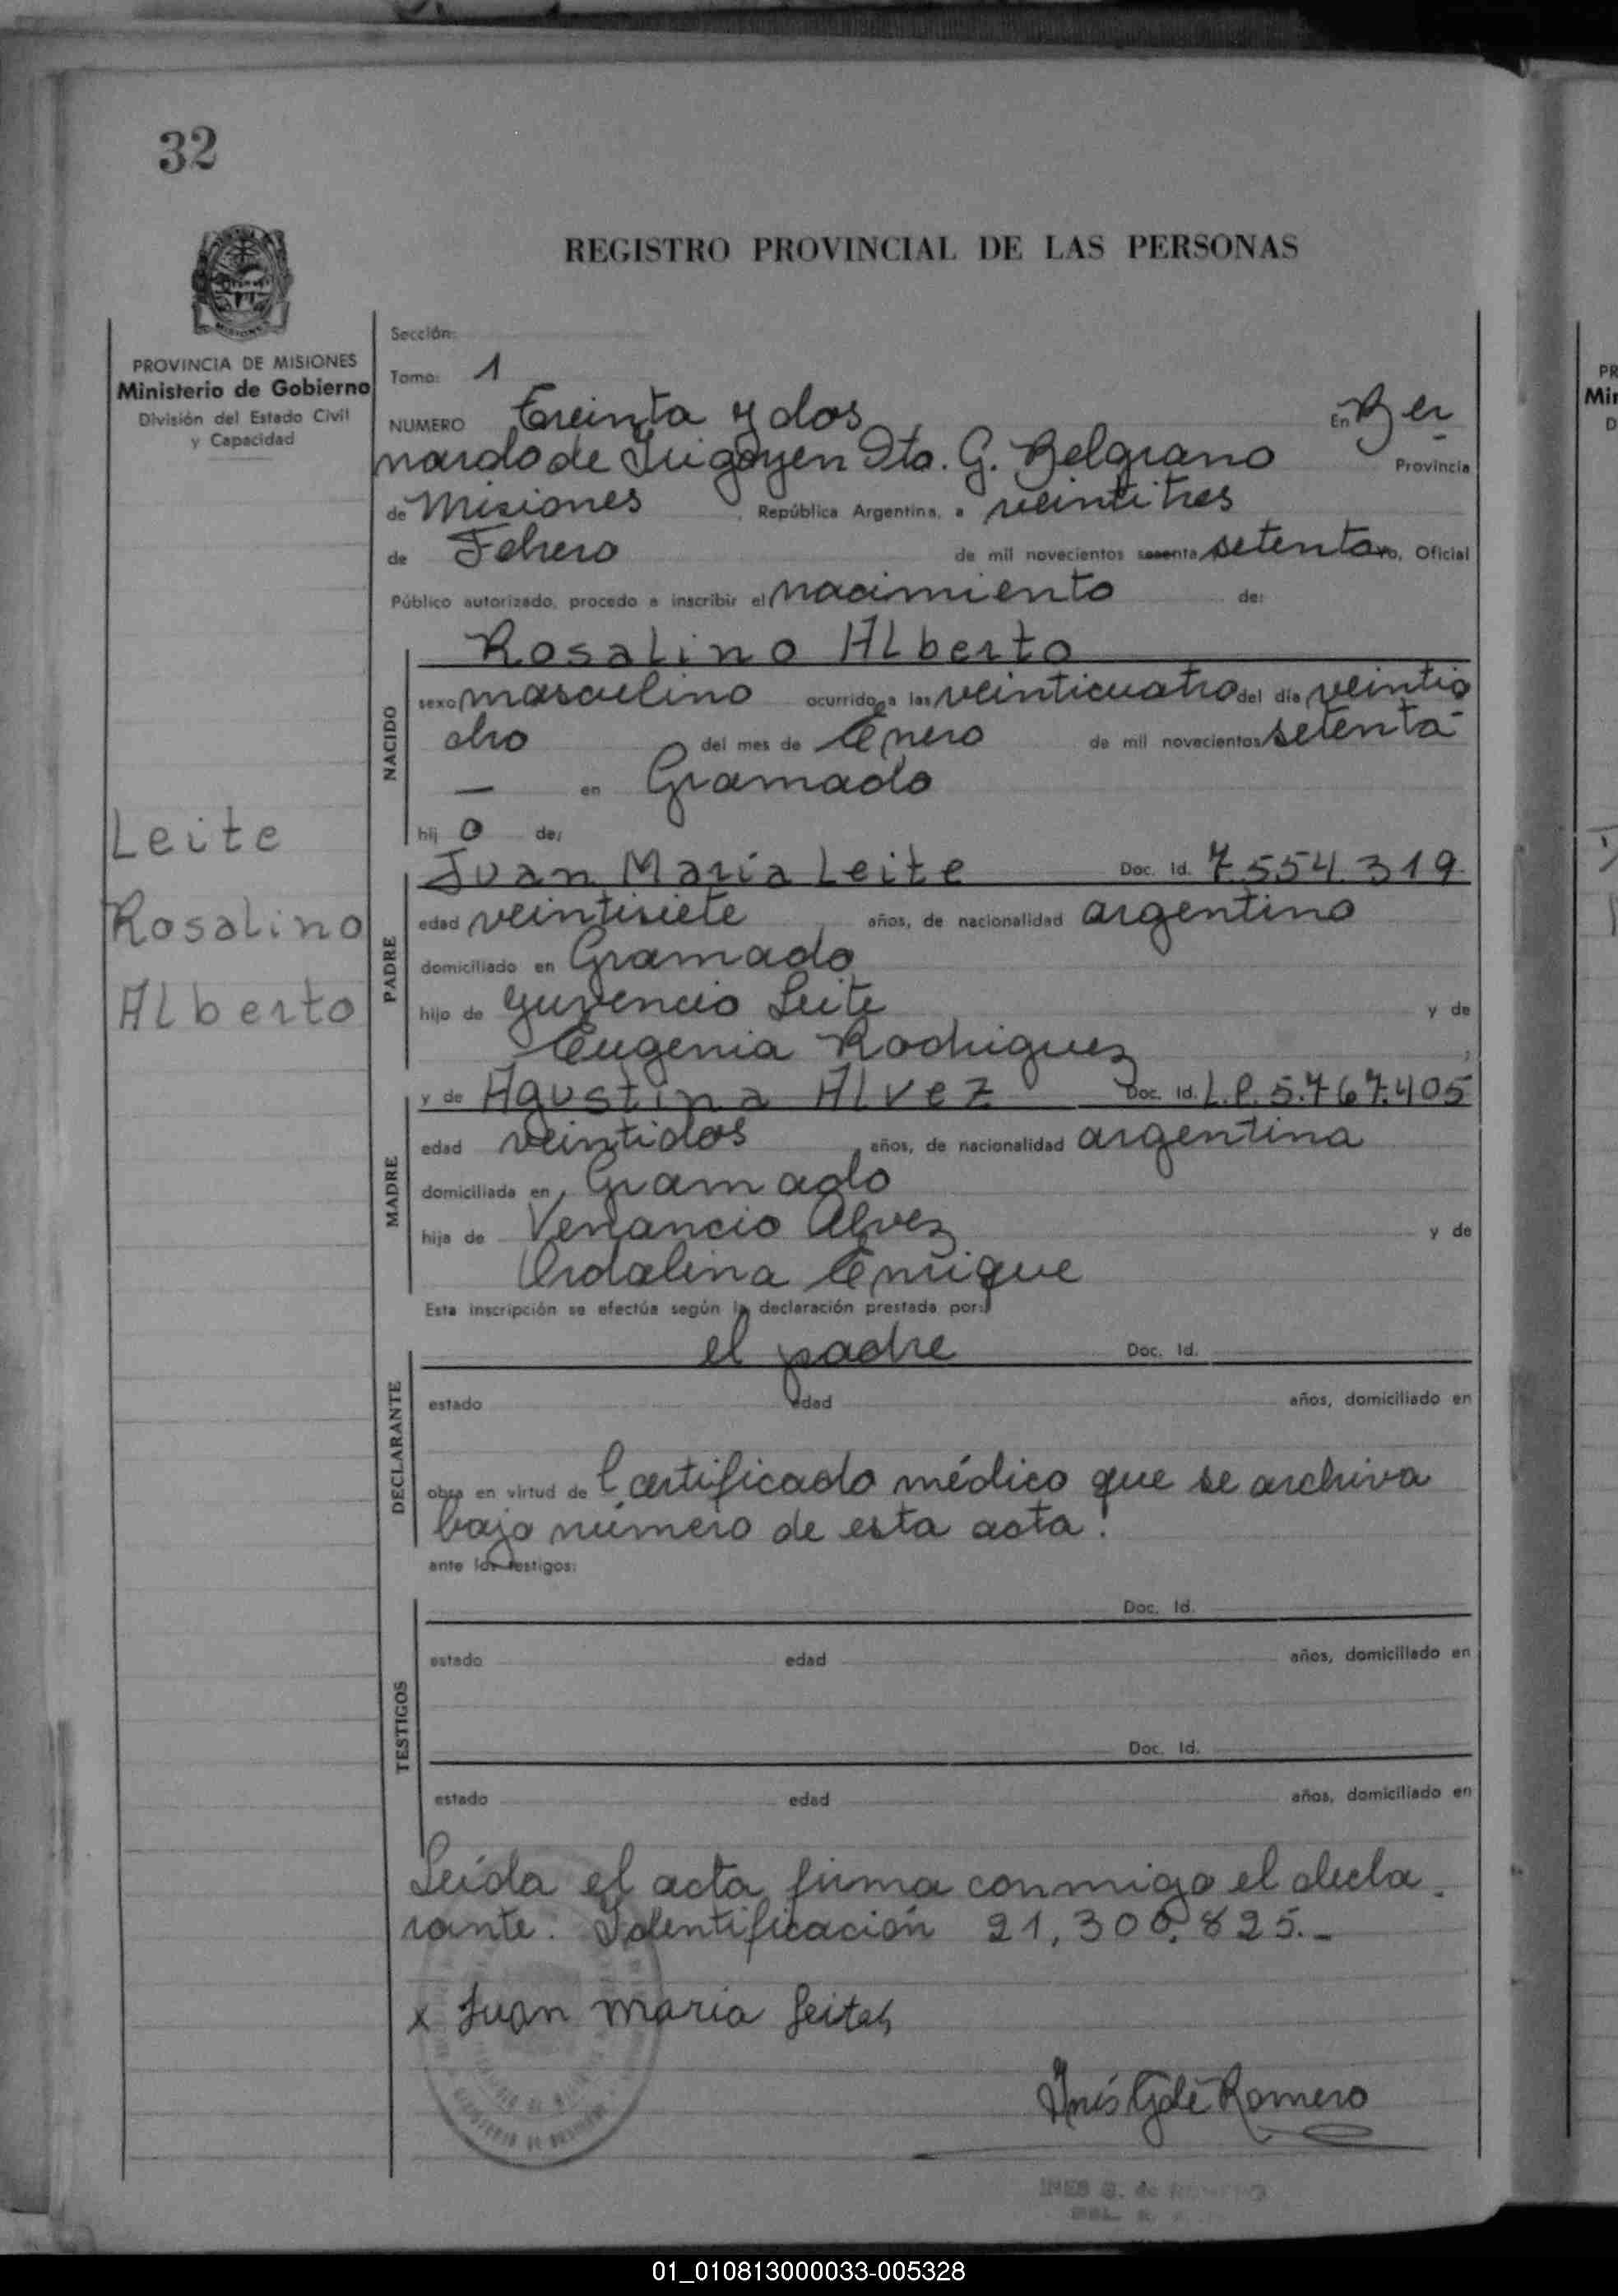 32
REGISTRO PROVINCIAL DE LAS PERSONAS
PROVINCIA DE MISIONES
Ministerio de Gobierno
División del Estado Civil
y Capacidad
Sección:
Tomo: 1
NUMERO Treinta y dos En Ber
nardo de Irigoyen Dto. G. Belgrano Provincia
de Misiones, República Argentina, a veintitres
de Febrero de mil novecientos sesenta setenta yo, Oficial
Público autorizado, procedo a inscribir el nacimiento de:
NACIDO
Rosalino Alberto
sexo masculino ocurrido a las veinticuatro del día veintio
cho del mes de Enero de mil novecientos setenta-
— en Gramado
hijo de:
Leite
Rosalino
Alberto
PADRE
Juan Maria Leite Doc. Id. 7.554.319
edad veintisiete años, de nacionalidad argentino
domiciliado en Gramado
hijo de Yuvencio Leite y de
Eugenia Rodriguez;
MADRE
y de Agustina Alvez Doc. Id. L.P. 5.767.405
edad veintidos años, de nacionalidad argentina
domiciliada en Gramado
hija de Venancio Alvez y de
Ordalina Enrique
Esta inscripción se efectúa según la declaración prestada por:
DECLARANTE
el padre Doc. Id.
estado edad años, domiciliado en
obra en virtud de Certificado médico que se archiva
bajo número de esta acta.
ante los testigos:
TESTIGOS
Doc. Id.
estado edad años, domiciliado en
Doc. Id.
estado edad años, domiciliado en
Leida el acta firma conmigo el decla-
rante. Identificación 21,300.825.-
x Juan maria Leites
Inés G de Romero
INES G. de ROMERO
01_010813000033-005328